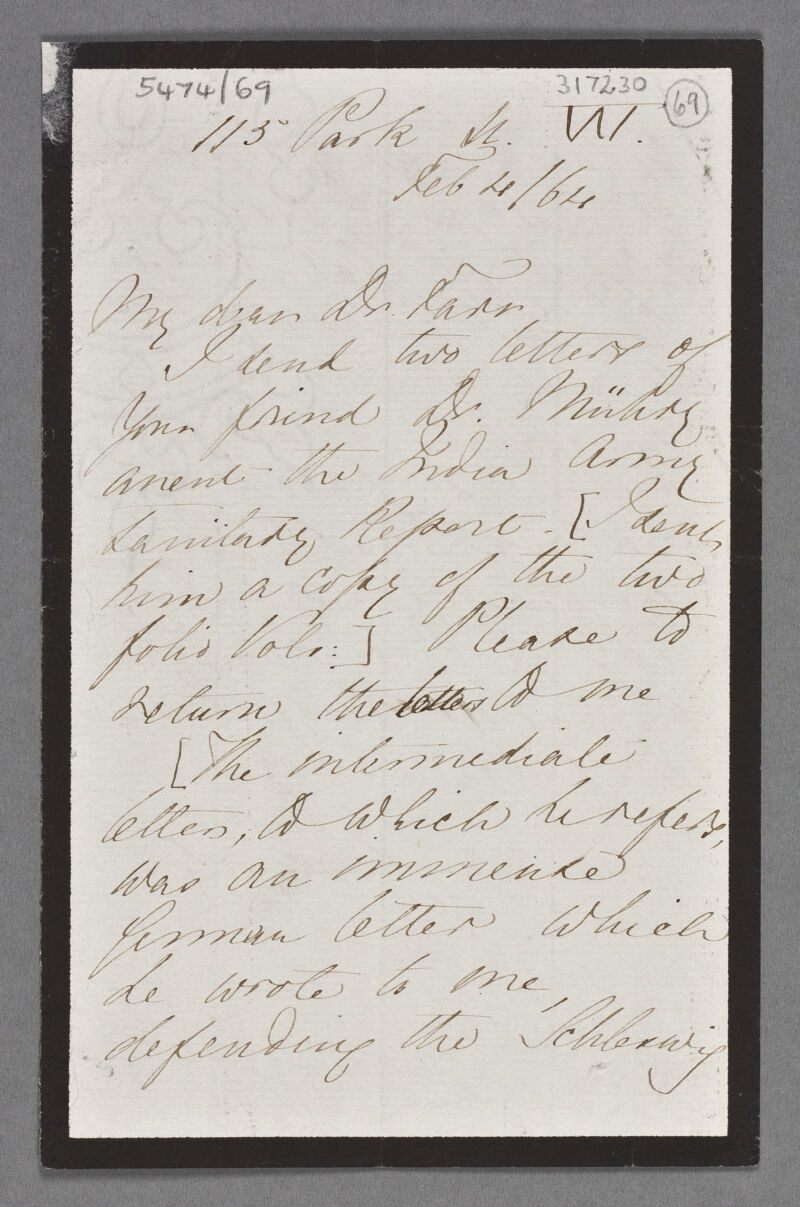 5474/69
317230
69
115 Park St. W.
Feb 4/64
My dear Dr. Farr
I send two letters of
your friend Dr. Mühry
anent the India Army
Sanitary Report. [I sent
him a copy of the two
folio Vols:] Please to
return the letters to me
[The intermediate
letter, to which he refers,
was an immense
German letter which
he wrote to me,
defending the Schleswig